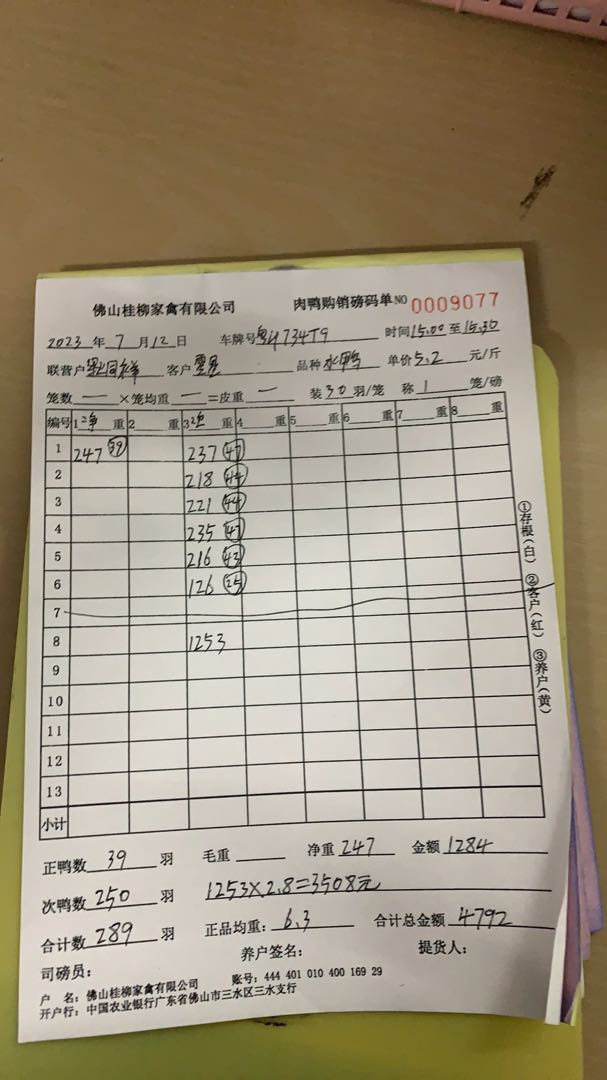 佛山桂柳家禽有限公司 肉鸭购销磅码单 NO 0009077
2023 年 7 月 12 日 车牌号 时间 15.00 至 15.30
联营户 客户 品种 水鸭 单价 5.2 元/斤
笼数 — ×笼均重 — =皮重 — 装 30 羽/笼 称 1 笼/磅
编号 1 净 重 2 重 3 重 4 重 5 重 6 重 7 重 8 重
1 247 39 237 47
2 218 44
3 221 44
4 235 47
5 216 43
6 126 25
7
8 1253
9
10
11
12
13
小计
①存根(白) ②客户(红) ③养户(黄)
正鸭数 39 羽 毛重 净重 247 金额 1284
次鸭数 250 羽 1253×2.8=3508元
合计数 289 羽 正品均重: 6.3 合计总金额 4792
司磅员: 养户签名: 提货人:
户 名: 佛山桂柳家禽有限公司 账号: 444 401 010 400 169 29
开户行: 中国农业银行广东省佛山市三水区三水支行